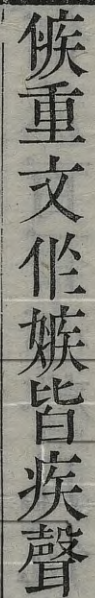 㑵重文作嫉皆疾聲